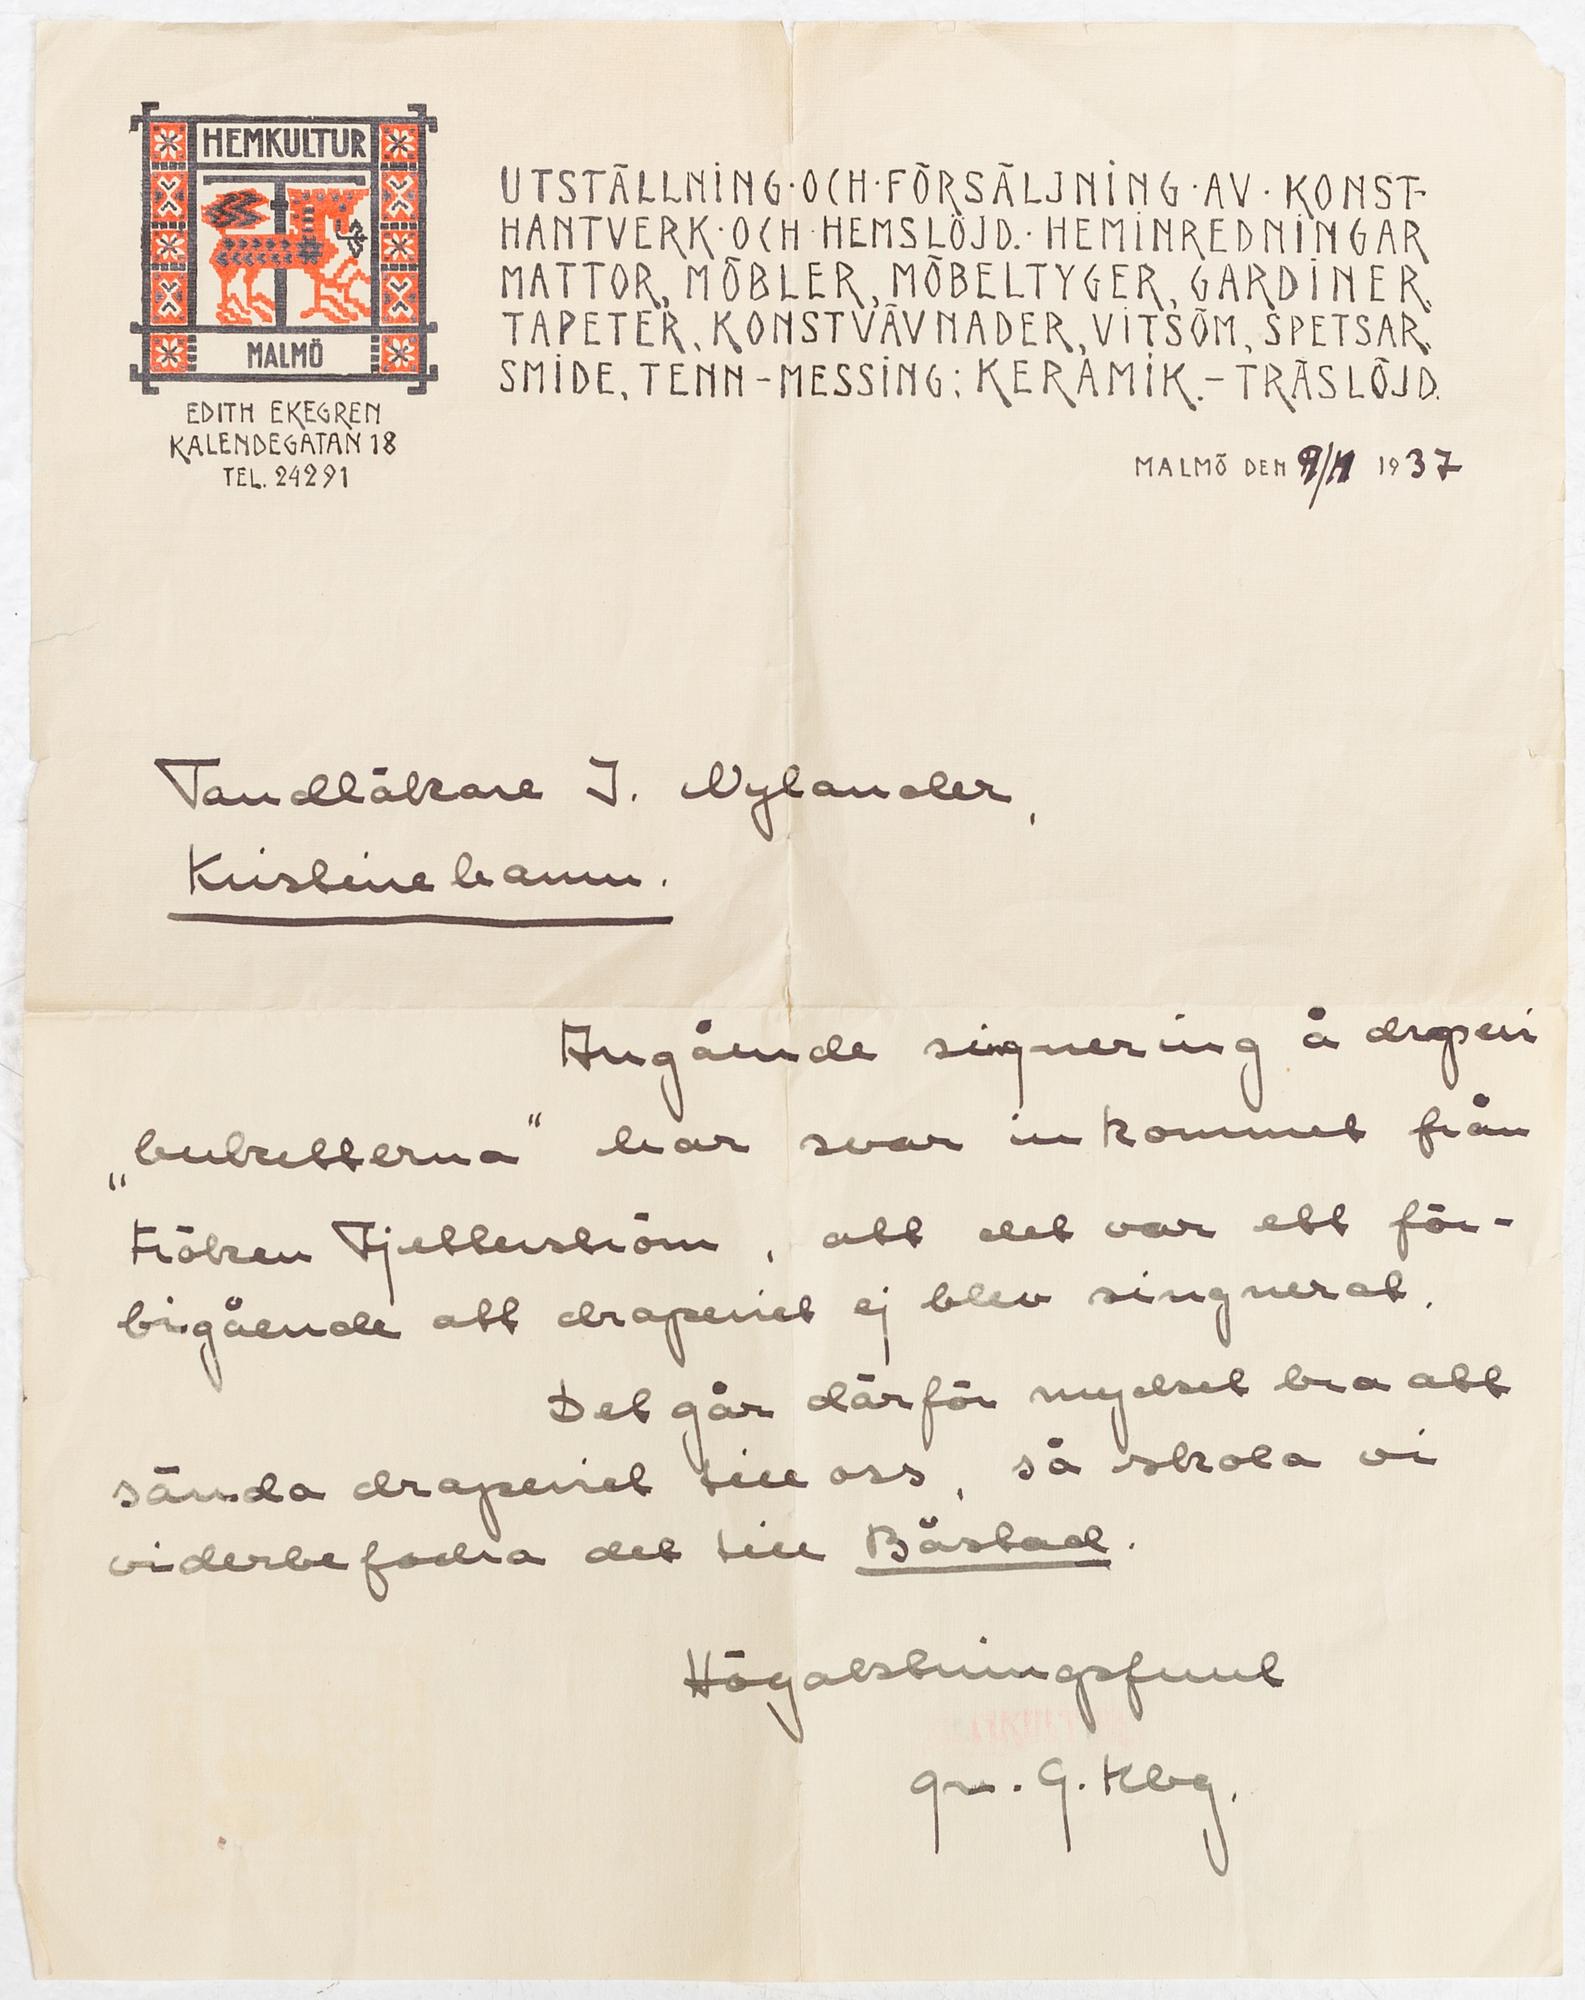 HEMKULTUR
MALMÖ
EDITH EKEGREN
KALENDEGATAN 18
TEL. 24291
UTSTÄLLNING·OCH·FÖRSÄLJNING·AV·KONST-
HANTVERK·OCH·HEMSLÖJD.·HEMINREDNINGAR
MATTOR, MÖBLER, MÖBELTYGER, GARDINER,
TAPETER, KONSTVÄVNADER, VITSÖM, SPETSAR,
SMIDE, TENN-MESSING; KERAMIK.-TRÄSLÖJD.
MALMÖ DEN 9/11 1937
Tandläkare J. Nylander,
Kristinehamn.
Angående signering å draperi
har svar inkommet från
Fröken Fjetterström, att det var ett för-
bigående att draperiet ej blev singnerat.
Det går därför mycket bra att
sända draperiet till oss, så skola vi
viderbefodra det till Båstad.
Högaktningsfullt
G. Kbg.